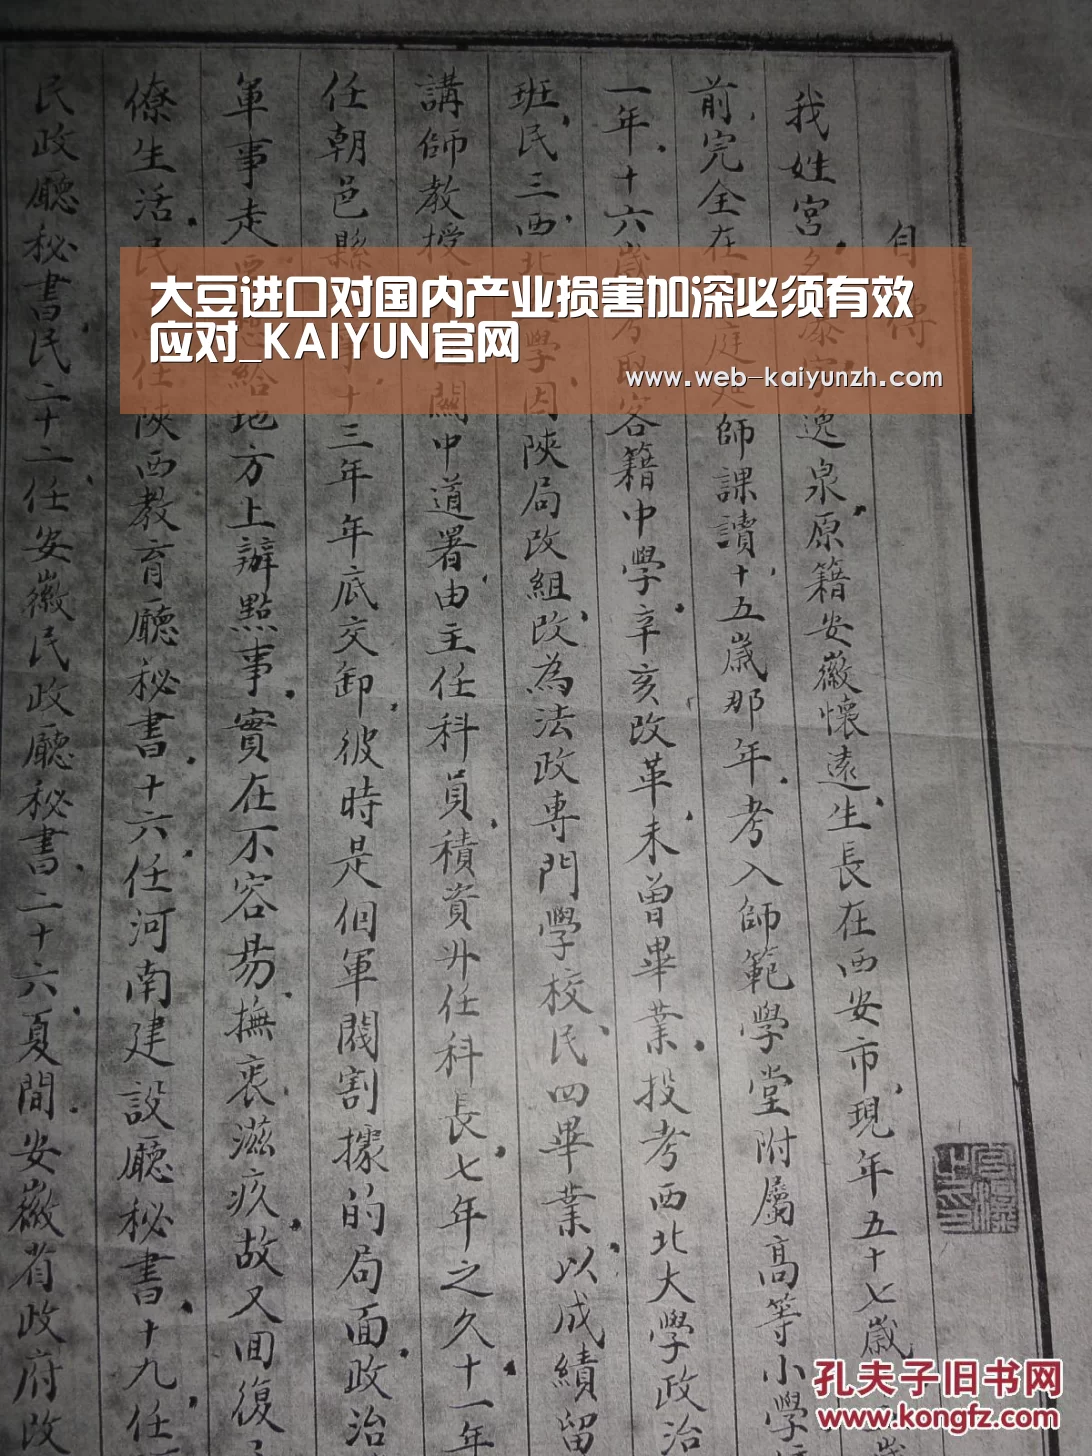 自传
我姓宫
泉原籍安徽懷遠生長在西安市現年五十七歲
前完全在
庭
師課讀十五歲那年考入師範學堂附屬高等小學
一年十六歲考取客籍中學辛亥改革未曾畢業投考西北大學政治
班民三西北
學因陝局改組改為法政專門學校民四畢業以成績留
講師教授
關中道署由主任科員積資升任科長七年之久十一年
任朝邑縣
十三年年底交卸彼時是個軍閥割據的局面政治
軍事走
給地方上辦點事實在不容易撫衷滋疚故又回復
僚生活民
任陝西教育廳秘書十六任河南建設廳秘書十九任
民政廳秘書民二十二任安徽民政廳秘書二十六夏間安徽省政府改
大豆进口对国内产业损害加深必须有效
应对_KAIYUN官网
www.web-kaiyunzh.com
孔夫子旧书网
www.kongfz.com